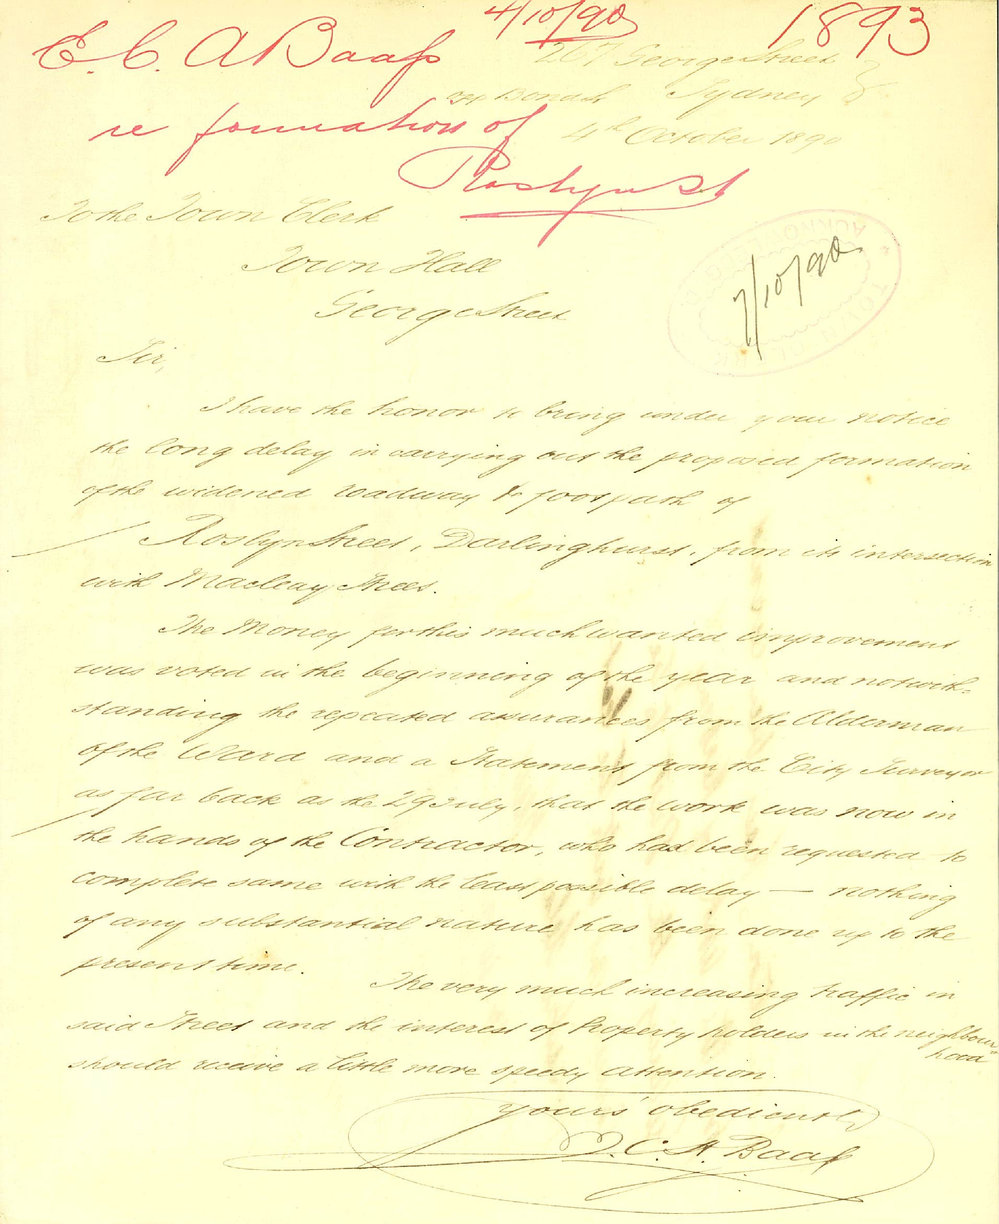 4/10/90 1893
E. C. A Baass
267 George Street
Sydney
re formation of
4th October 1890
Roslyn St
To the Town Clerk
Town Hall
George Street
TOWN CLERK
ACKNOWLEDGED
7/10/90
Sir,
I have the honor to bring under your notice
the long delay in carrying out the proposed formation
of the widened roadway & footpath of
Roslyn Street, Darlinghurst, from its intersection
with Macleay Street.
The Money for this much wanted improvement
was voted in the beginning of the year and notwith-
standing the repeated assurances from the Alderman
of the Ward and a Statement from the City Surveyor
as far back as the 29 July, that the work was now in
the hands of the Contractor, who had been requested to
complete same with the least possible delay — nothing
of any substantial nature has been done up to the
present time.
The very much increasing traffic in
said Street and the interest of Property holders in the neighbour-
hood
should receive a little more speedy attention.
Yours obediently
C. A. Baass